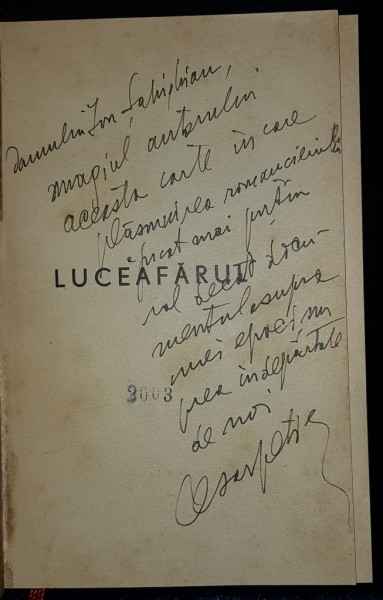 Domnului Ion Șahighian,
omagiul autorului,
aceasta carte în care
plăsmuirea romancierului
a jucat mai puțin
LUCEAFĂRUL
rol decât docu-
mentul asupra
unei epoci nu
prea îndepărtate
2003
de noi
Cezar Petrescu